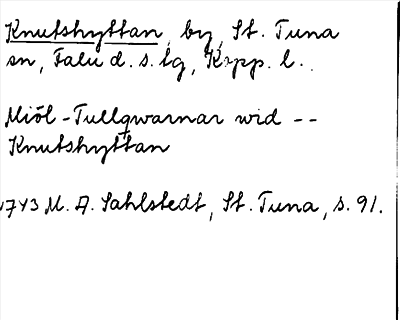 Knutshyttan, by, St. Tuna
sn, Falu d. s. lg, Kopp. l.
Miöl-Tullqwarnar wid --
Knutshyttan
1743 M. A. Sahlstedt, St. Tuna, s. 91.